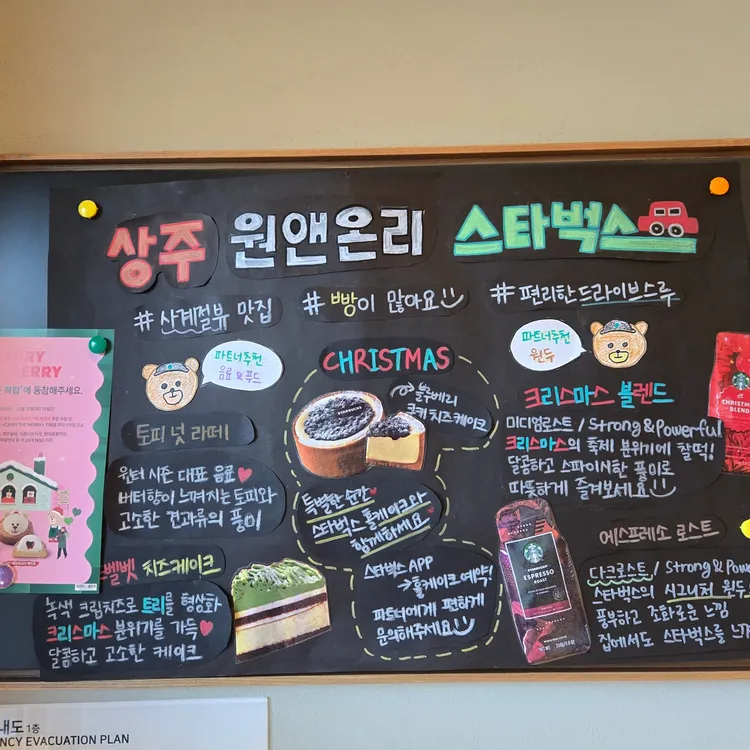 상주 원앤온리 스타벅스
# 사계절뷰 맛집
# 빵이 많아요
# 편리한 드라이브스루
파트너추천
음료 & 푸드
토피 넛 라떼
윈터 시즌 대표 음료
버터향이 느껴지는 토피와
고소한 견과류의 풍미
벨벳 치즈케이크
녹색 크림치즈로 트리를 형상화
크리스마스 분위기를 가득
달콤하고 고소한 케이크
CHRISTMAS
블루베리
쿠키 치즈케이크
특별한 순간
스타벅스 홀케이크와
함께하세요
스타벅스 APP
→홀케이크 예약!
파트너에게 편하게
문의해주세요
파트너추천
원두
크리스마스 블렌드
미디엄로스트 / Strong & Powerful
크리스마스의 축제 분위기에 찰떡!
달콤하고 스파이시한 풍미로
따뜻하게 즐겨보세요
에스프레소 로스트
다크로스트 / Strong & Pow
스타벅스의 시그니처 원두
풍부하고 조화로운 느낌
집에서도 스타벅스를 느껴
ESPRESSO
ROAST
CHRISTMAS
BLEND
ERRY
에 동참해주세요.
내도 1층
NCY EVACUATION PLAN